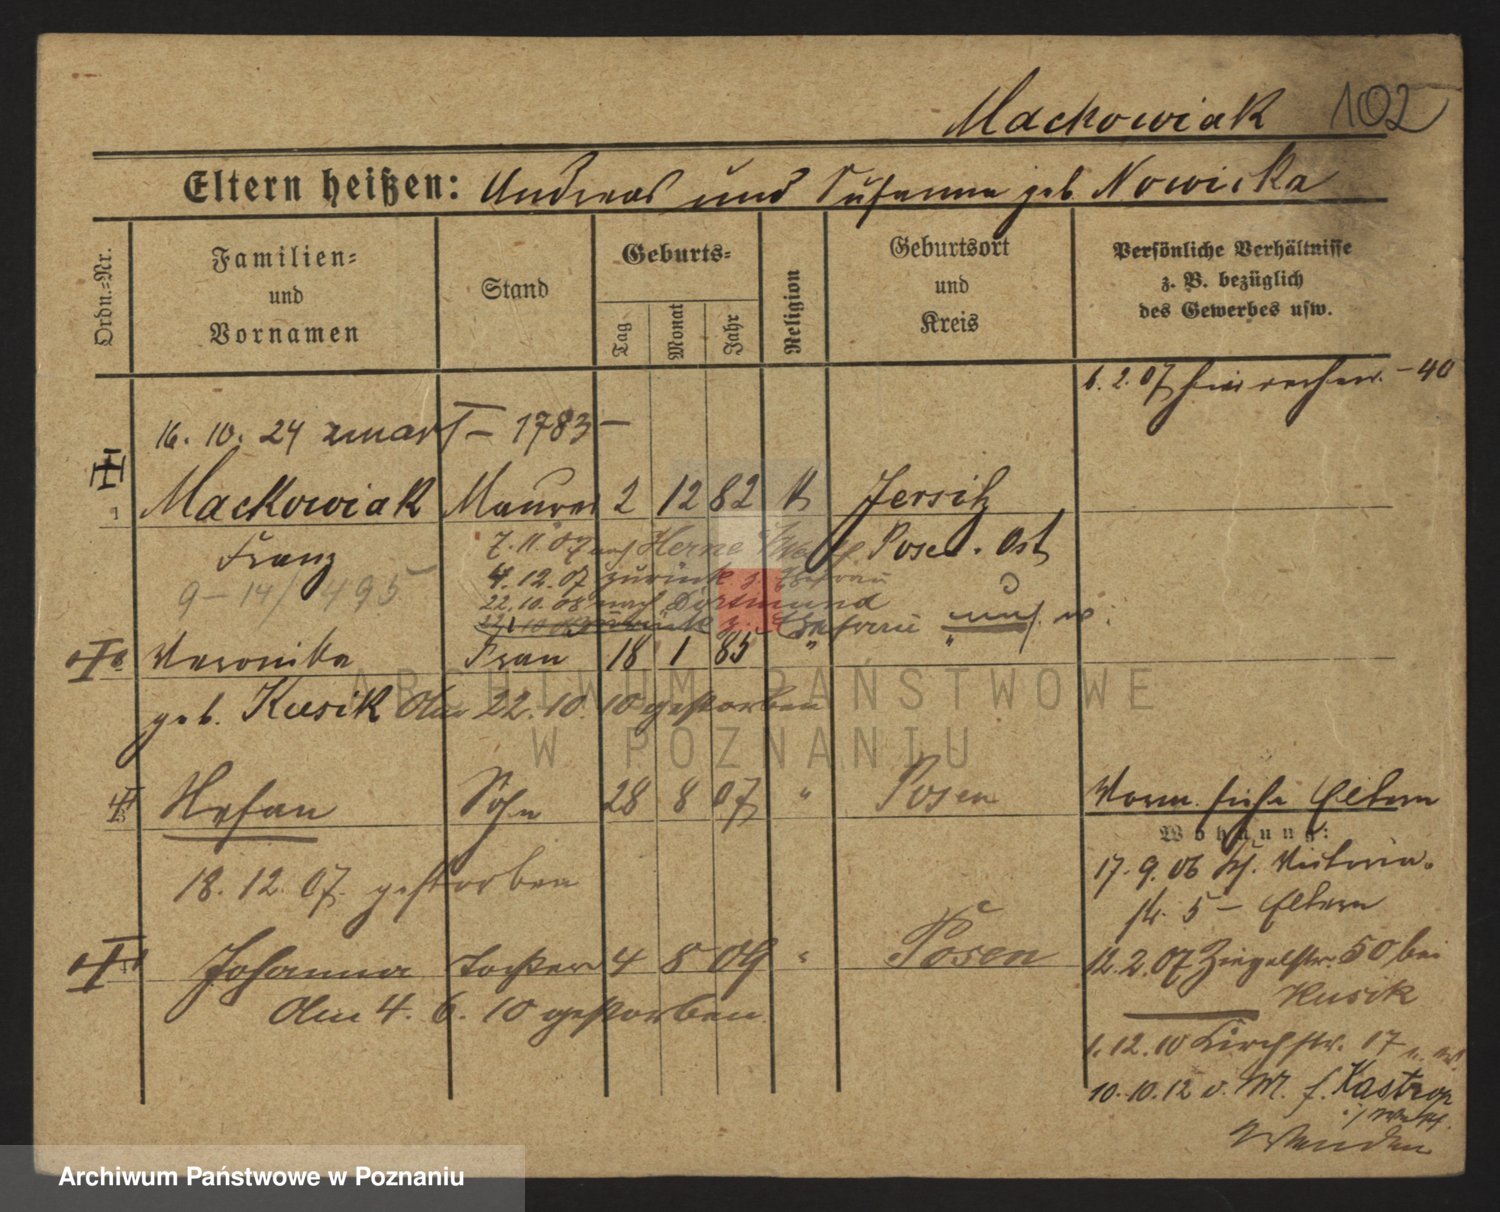 Mackowiak 102
Eltern heißen: Andreas und Susanna geb. Nowicka
Ordn.-Nr.
Familien-
und
Vornamen
Stand
Geburts-
Tag
Monat
Jahr
Religion
Geburtsort
und
Kreis
Persönliche Verhältnisse
z. B. bezüglich
des Gewerbes usw.
6. 2. 07 - 40
16. 10. 24 zmarł - 1783 -
1 Mackowiak Maurer 2 12 82 K Jersitz
Franz 7. 11. 07 nach Herne Posen. Ost
9 - 14/495 4. 12. 07 zurück z. Ehefrau
22. 10. 08 nach Dortmund
zurück z. Ehefrau
Veronika Frau 18 1 85 " "
geb. Kusik Am 22. 10. 10 gestorben
Stefan Sohn 28 8 07 " Posen
18. 12. 07. gestorben
Johanna Tochter 4 8 09 " Posen
Am 4. 6. 10 gestorben.
Vorm. siehe Eltern
Wohnung:
17. 9. 06 Victoria-
str. 5 - Eltern
12. 2. 07 Ziegelstr. 50 bei
Kusik
1. 12. 10 Kirchstr. 17
10. 10. 12 v. M. f. Kastrop
i/ Westf.
Wenden
ARCHIWUM PAŃSTWOWE
W POZNANIU
Archiwum Państwowe w Poznaniu